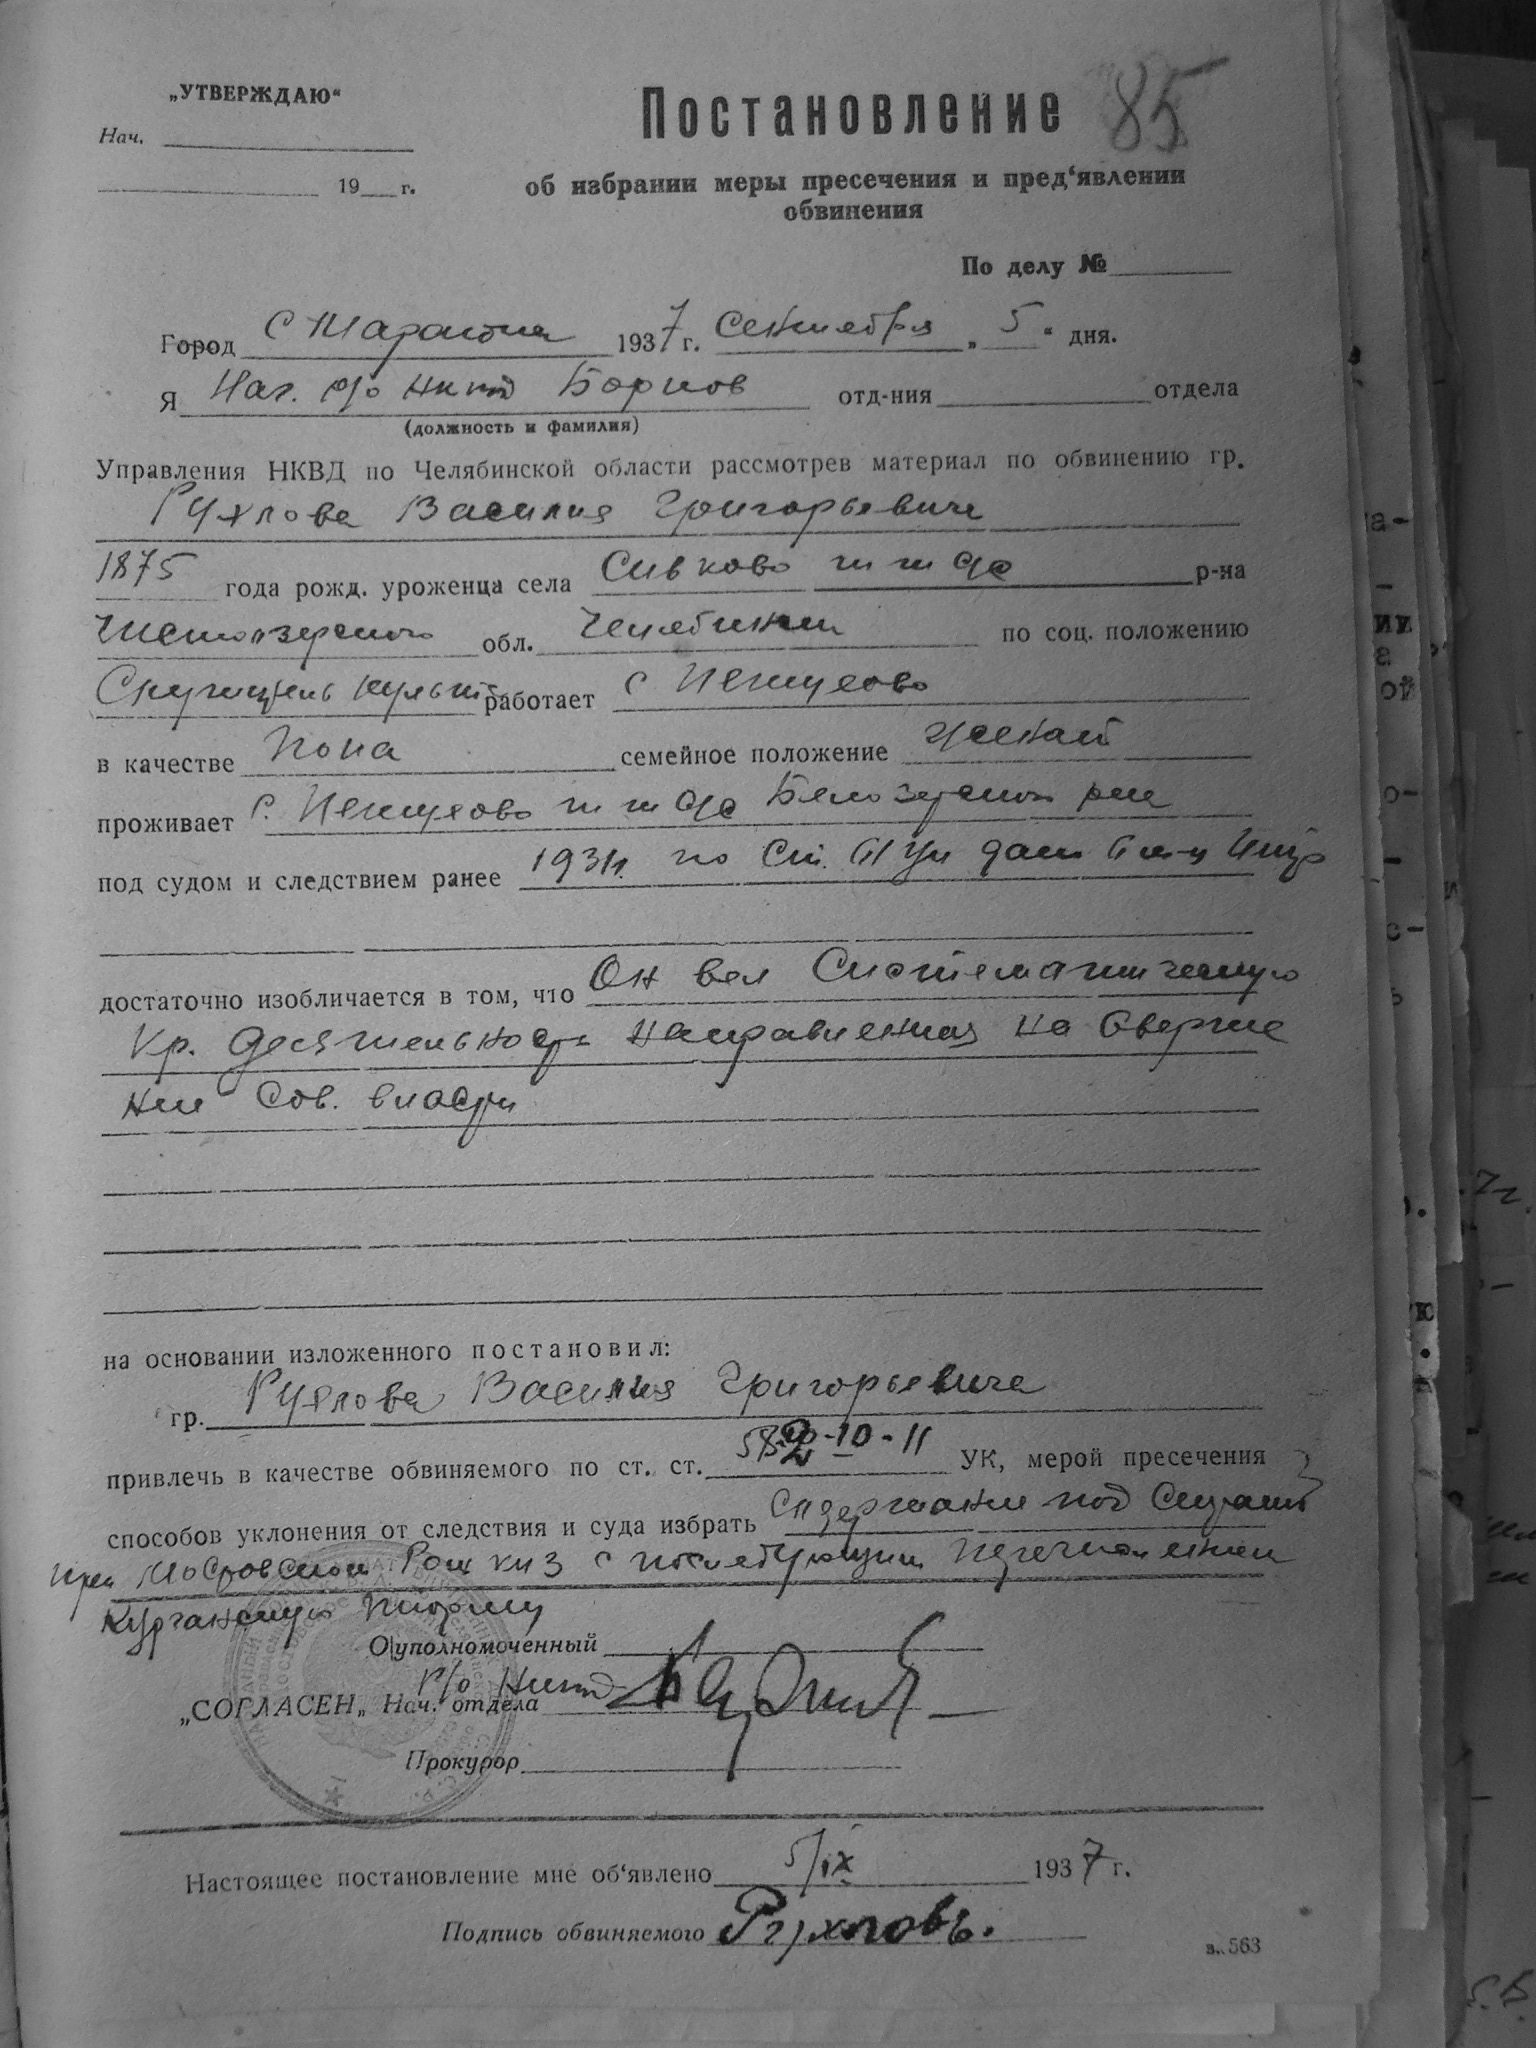 85
„УТВЕРЖДАЮ“
Постановление
Нач.
19 г.
об избрании меры пресечения и пред‘явлении
обвинения
По делу №
Город с 1937 г. Сентября „ 5 “ дня.
Я Нач. р/о нквд отд-ния отдела
(должность и фамилия)
Управления НКВД по Челябинской области рассмотрев материал по обвинению гр.
Рухлова Василия Григорьевича
1875 года рожд. уроженца села Сивково р-на
обл. Челябинской по соц. положению
Служитель культа работает с
в качестве попа семейное положение женат
проживает с. Белозерского р-на
под судом и следствием ранее по ст.
достаточно изобличается в том, что Он вел Систематическую
Кр. деятельность направленная на Сверже
ние Сов. власти
на основании изложенного постановил:
гр. Рухлова Василия Григорьевича
привлечь в качестве обвиняемого по ст. ст. 58-2-10-11 УК, мерой пресечения
способов уклонения от следствия и суда избрать Содержание под Стражей
при Мостовском с последующим перечислением
Курганскую тюрьму
О/уполномоченный
р/о Нквд
„СОГЛАСЕН„ Нач. отдела
Прокурор
Настоящее постановление мне об‘явлено 5/IX 1937 г.
Подпись обвиняемого Рухловъ.
з. 563